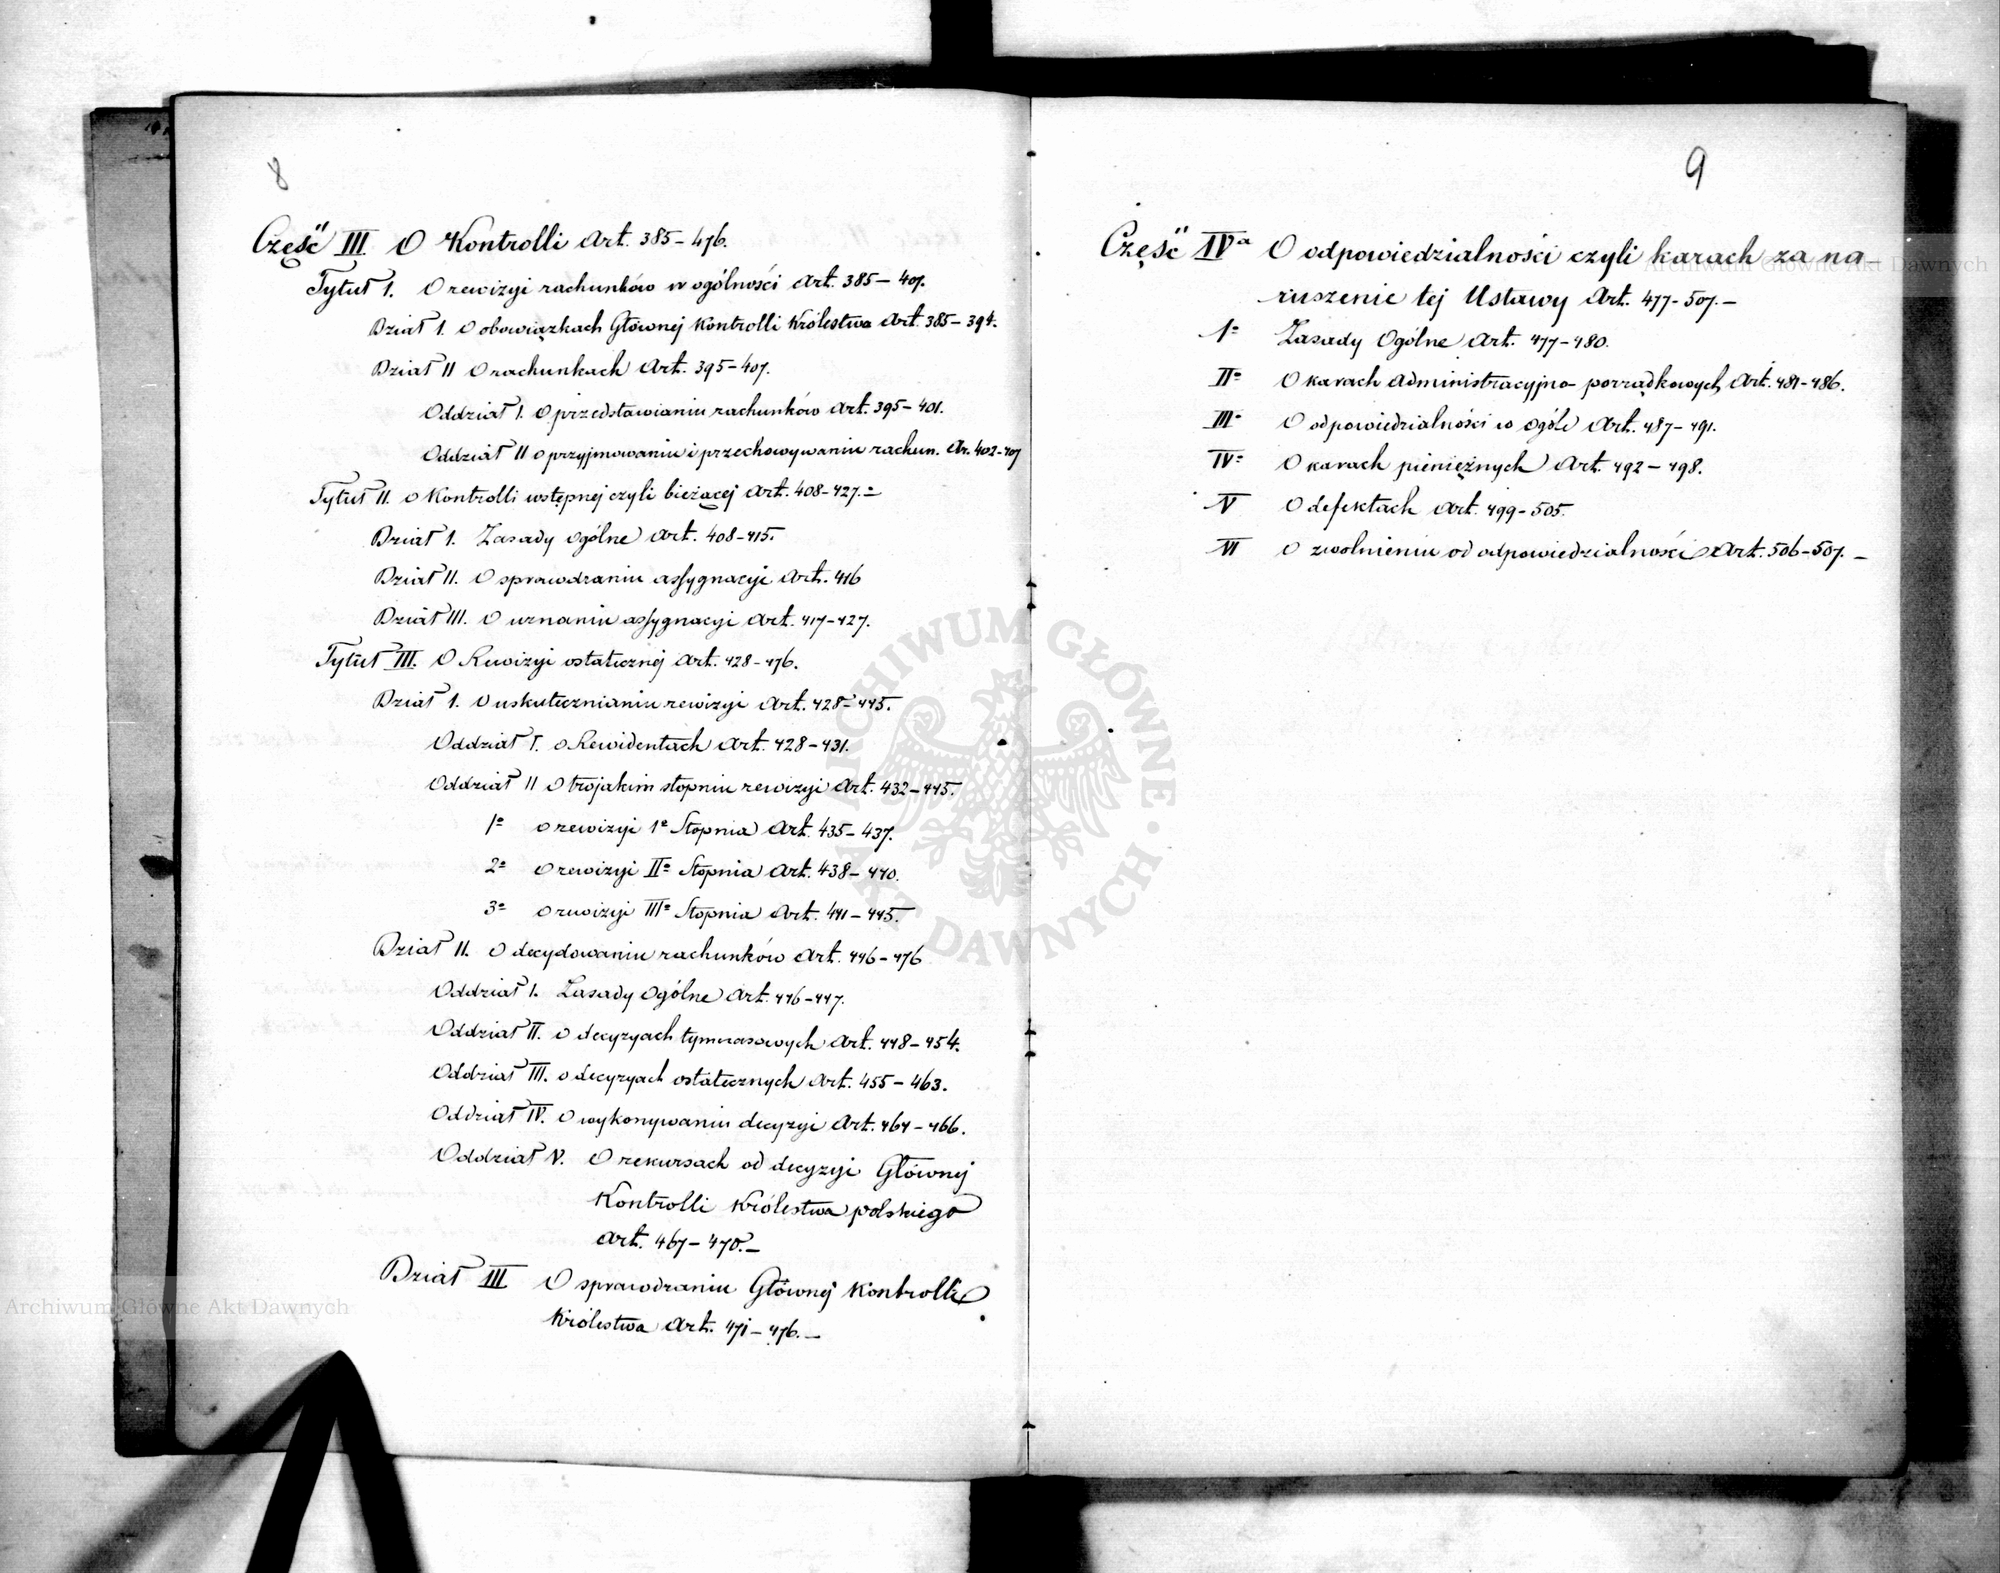 8
Część III. O Kontrolli Art. 385–476.
Tytuł I. O rewizyi rachunków w ogólności Art. 385–407.
Dział I. O obowiązkach Głównej Kontrolli Królestwa Art. 385–394.
Dział II O rachunkach Art. 395–407.
Oddział I. O przedstawianiu rachunków Art. 395–401.
Oddział II O przyjmowaniu i przechowywaniu rachun. Ar. 402–407
Tytuł II. O Kontrolli wstępnej czyli bieżącej Art. 408–427.–
Dział I. Zasady Ogólne Art. 408–415.
Dział II. O sprawdzaniu assygnacyi Art. 416
Dział III. O uznaniu assygnacyi Art. 417–427.
Tytuł III. O Rewizyi ostatecznej Art. 428–476.
Dział I. O uskutecznianiu rewizyi Art. 428–445.
Oddział I. O Rewidentach Art. 428–431.
Oddział II O trojakim stopniu rewizyi Art. 432–445.
1o O rewizyi 1o Stopnia Art. 435–437.
2o O rewizyi IIo Stopnia Art. 438–440.
3o O rewizyi IIIo Stopnia Art. 441–445.
Dział II. O decydowaniu rachunków Art. 446–476
Oddział I. Zasady Ogólne Art. 446–447.
Oddział II. O decyzyach tymczasowych Art. 448–454.
Oddział III. O decyzyach ostatecznych Art. 455–463.
Oddział IV. O wykonywaniu decyzyi Art. 464–466.
Oddział V. O rekursach od decyzyi Głównej
Kontrolli Królestwa polskiego
Art. 467–470.–
Dział III O sprawdzaniu Głównej Kontrolli
Królestwa Art. 471–476.–
9
Część IVa O odpowiedzialności czyli karach za na–
ruszenie tej Ustawy Art. 477–507.–
1o Zasady Ogólne Art. 477–480.
IIo O karach Administracyjno-porządkowych Art. 481–486.
IIIo O odpowiedzialności w ogóle Art. 487–491.
IVo O karach pieniężnych Art. 492–498.
V O defektach Art. 499–505.
VI O zwolnieniu od odpowiedzialności Art. 506–507.–
Archiwum Główne Akt Dawnych
ARCHIWUM GŁÓWNE · AKT DAWNYCH ·
Archiwum Główne Akt Dawnych